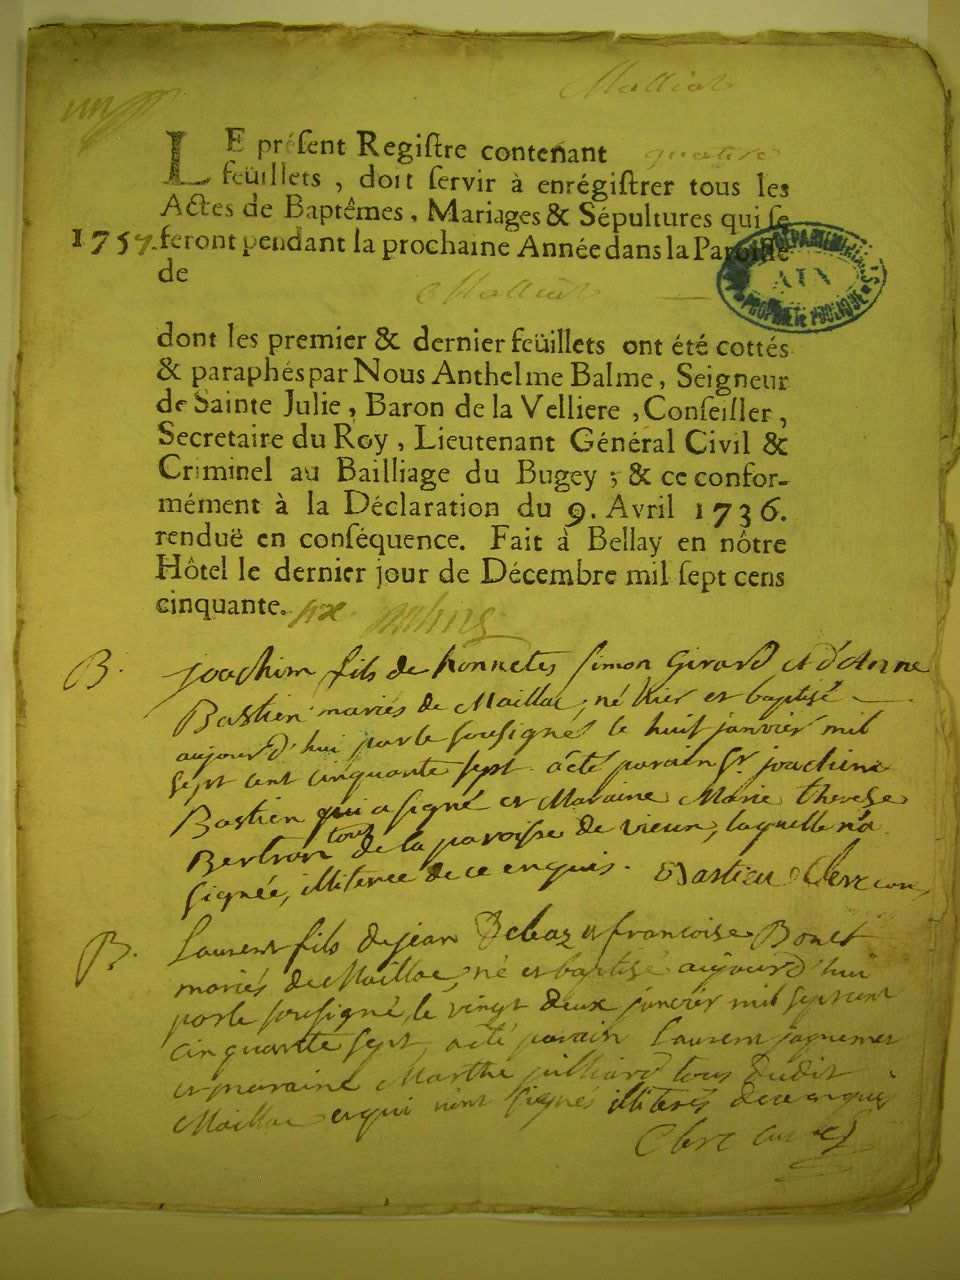 Malliat
LE préſent Regiſtre contenant quatre
feüillets, doit ſervir à enrégiſtrer tous les
Actes de Baptêmes, Mariages & Sépultures qui ſe
1757. feront pendant la prochaine Année dans la Paroiſſe
de Malliat
ATN
PROPRIETE PUBLIQUE
dont les premier & dernier feüillets ont été cottés
& paraphés par Nous Anthelme Balme, Seigneur
de Sainte Julie, Baron de la Velliere, Conſeiller,
Secretaire du Roy, Lieutenant Général Civil &
Criminel au Bailliage du Bugey; & ce confor-
mément à la Déclaration du 9. Avril 1736.
renduë en conſéquence. Fait à Bellay en nôtre
Hôtel le dernier jour de Décembre mil ſept cens
cinquante. six
B. joachim fils de honnetes Simon Girard et d'Anne
Bastien mariés de Maillac, né hier et baptisé
aujourd'hui par le sousigné le huit janvier mil
sept cent cinquante sept. a été parain Sr. joachim
Bastien qui a signé et Maraine Marie therese
Bertron tous de la paroisse de vieux, laquelle n'a
signée, illiterée de ce enquis. Bastien Clerc curé
B. Laurent fils de jean et francoise Bonet
mariés de Maillac, né et baptisé aujourd'hui
par le sousigné, le vingt deux janvier mil sept cent
cinquante sept, a été parain Laurent jaquemet
et maraine Marthe juilliard tous dudit
Maillac et qui n'ont signés illiterés de ce enquis
Clerc curé